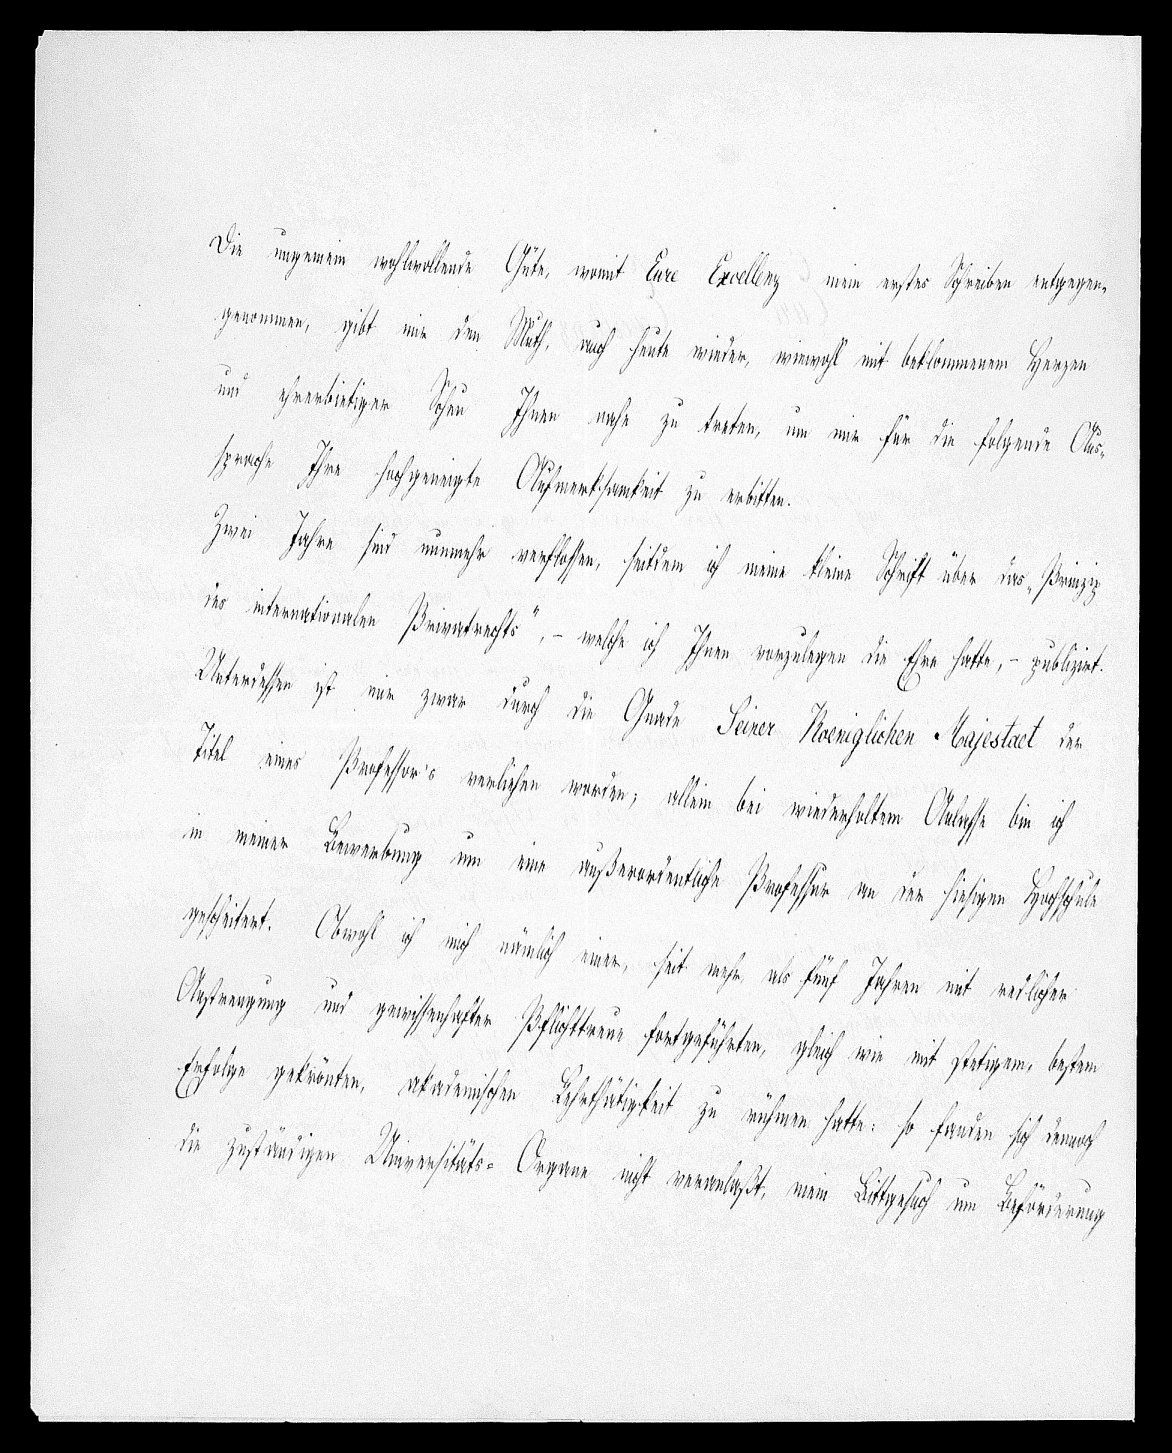 Die ungemein wohlwollende Güte, womit Eure Excellenz mein erstes Schreiben entgegen-
genommen, gibt mir den Muth, auch heute wieder, wiewohl mit beklommenem Herzen
und ehrerbietiger Scheu Ihnen nahe zu treten, um mir für die folgende Aus-
sprache Ihre hochgeneigte Aufmerksamkeit zu erbitten.
Zwei Jahre sind nunmehr verflossen, seitdem ich meine kleine Schrift über das „Prinzip
des internationalen Privatrechts", – welche ich Ihnen vorzulegen die Ehre hatte, – publizirt.
Unterdessen ist mir zwar durch die Gnade Seiner Koeniglichen Majestaet der
Titel eines Professor's verliehen worden; allein bei wiederholtem Anlasse bin ich
in meiner Bewerbung um eine außerordentliche Professur an der hiesigen Hochschule
gescheitert. Obwohl ich mich nämlich einer, seit mehr als fünf Jahren mit redlicher
Anstrengung und gewissenhafter Pflichttreue fortgeführten, gleich wie mit stetigem, bestem
Erfolge gekrönten, akademischen Lehrthätigkeit zu rühmen hatte: so fanden sich dennoch
die zuständigen Universitäts- Organe nicht veranlaßt, mein Bittgesuch um Beförderung